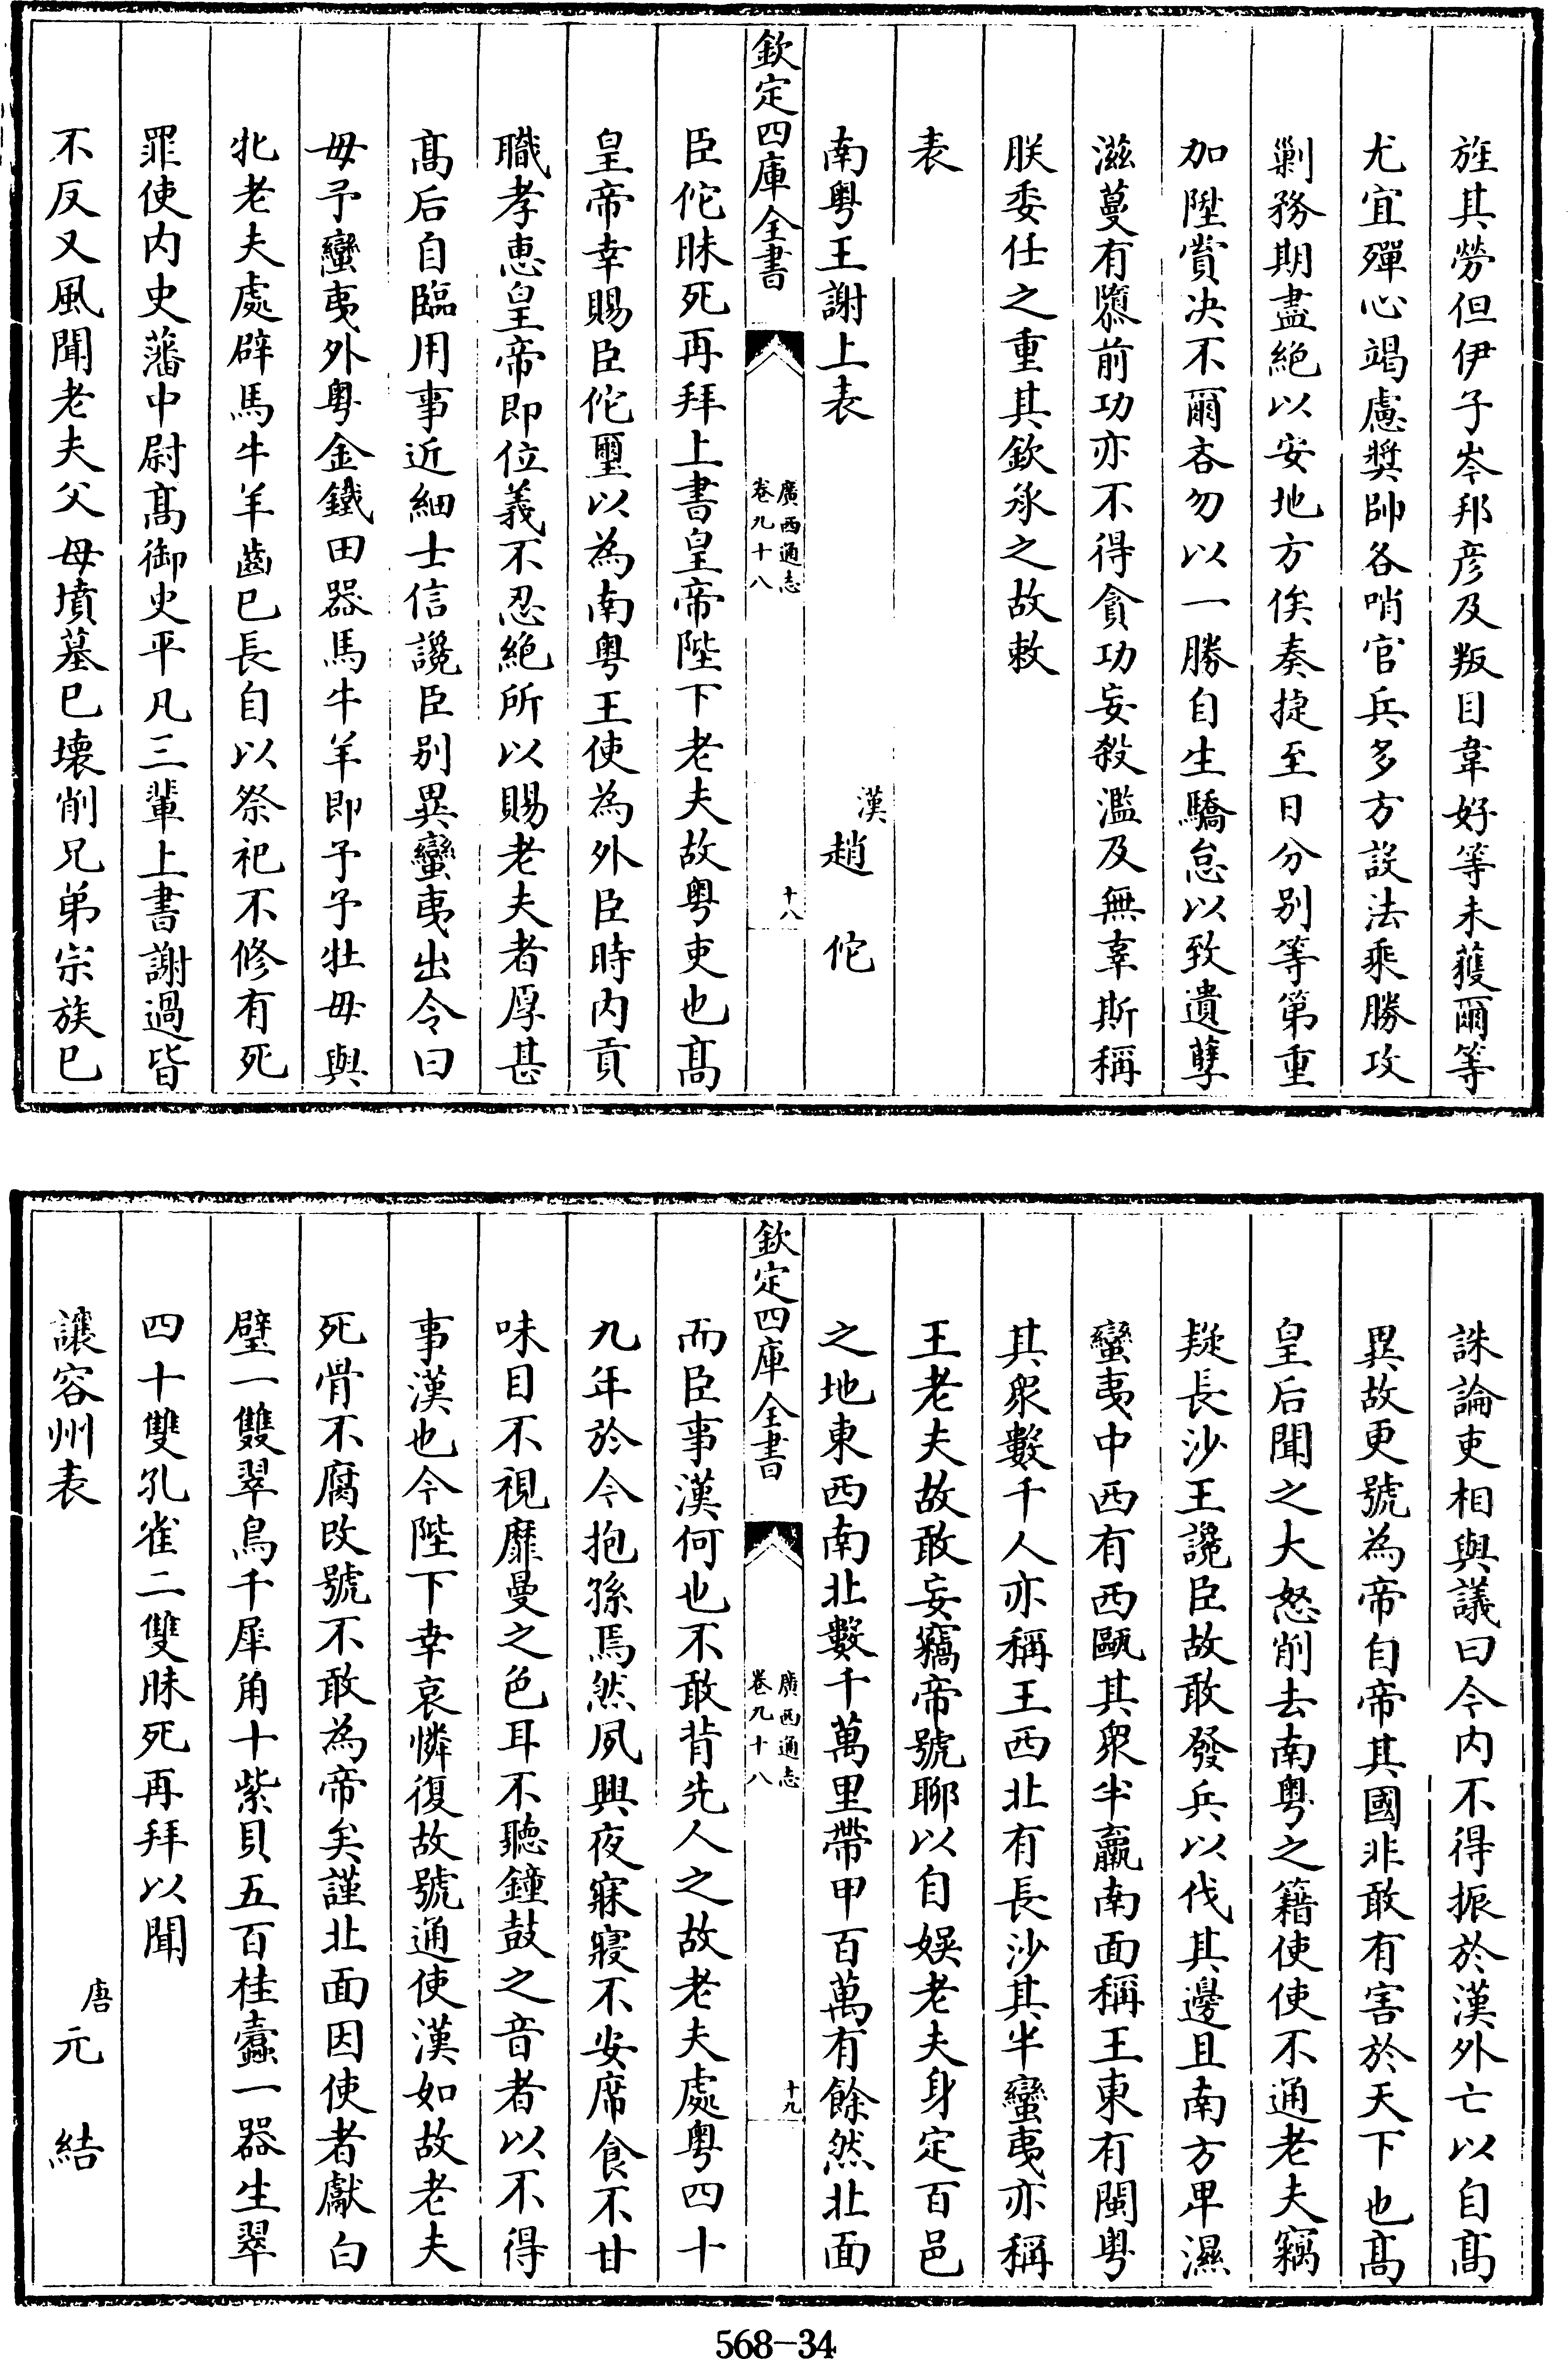 旌其勞但伊子岑邦彦及叛目韋好等未獲爾等
尤宜殫心竭慮奬帥各哨官兵多方設法乘勝攻
剿務期盡絶以安地方俟奏捷至日分别等第重
加陞賞决不爾吝勿以一勝自生驕怠以致遺孽
滋蔓有隳前功亦不得貪功妄殺濫及無辜斯稱
朕委任之重其欽承之故敕
表
南粤王謝上表　漢趙佗
欽定四庫全書　廣西通志卷九十八　十八
臣佗昧死再拜上書皇帝陛下老夫故粤吏也髙
皇帝幸賜臣佗璽以為南粤王使為外臣時内貢
職孝惠皇帝即位義不忍絶所以賜老夫者厚甚
髙后自臨用事近細士信讒臣别異蠻夷出令曰
毋予蠻夷外粤金鐵田器馬牛羊即予予牡毋與
牝老夫處辟馬牛羊齒已長自以祭祀不修有死
罪使内史藩中尉髙御史平凡三輩上書謝過皆
不反又風聞老夫父母墳墓已壊削兄弟宗族已
誅論吏相與議曰今内不得振於漢外亡以自髙
異故更號為帝自帝其國非敢有害於天下也髙
皇后聞之大怒削去南粤之籍使使不通老夫竊
疑長沙王讒臣故敢發兵以伐其邊且南方卑濕
蠻夷中西有西甌其衆半羸南面稱王東有閩粤
其衆數千人亦稱王西北有長沙其半蠻夷亦稱
王老夫故敢妄竊帝號聊以自娱老夫身定百邑
之地東西南北數千萬里帶甲百萬有餘然北面
欽定四庫全書　廣西通志卷九十八　十九
而臣事漢何也不敢背先人之故老夫處粤四十
九年於今抱孫焉然夙興夜寐寢不安席食不甘
味目不視靡曼之色耳不聽鐘鼓之音者以不得
事漢也今陛下幸哀憐復故號通使漢如故老夫
死骨不腐改號不敢為帝矣謹北面因使者獻白
璧一雙翠鳥千犀角十紫貝五百桂蠹一器生翠
四十雙孔雀二雙昧死再拜以聞
讓容州表　唐元結
568-34